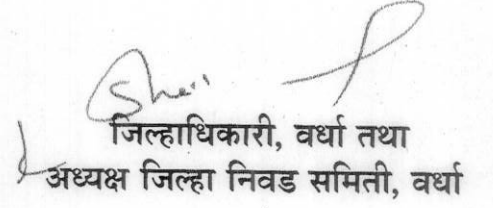 जिल्हाधिकारी, वर्धा तथा
अध्यक्ष जिल्हा निवड समिती, वर्धा